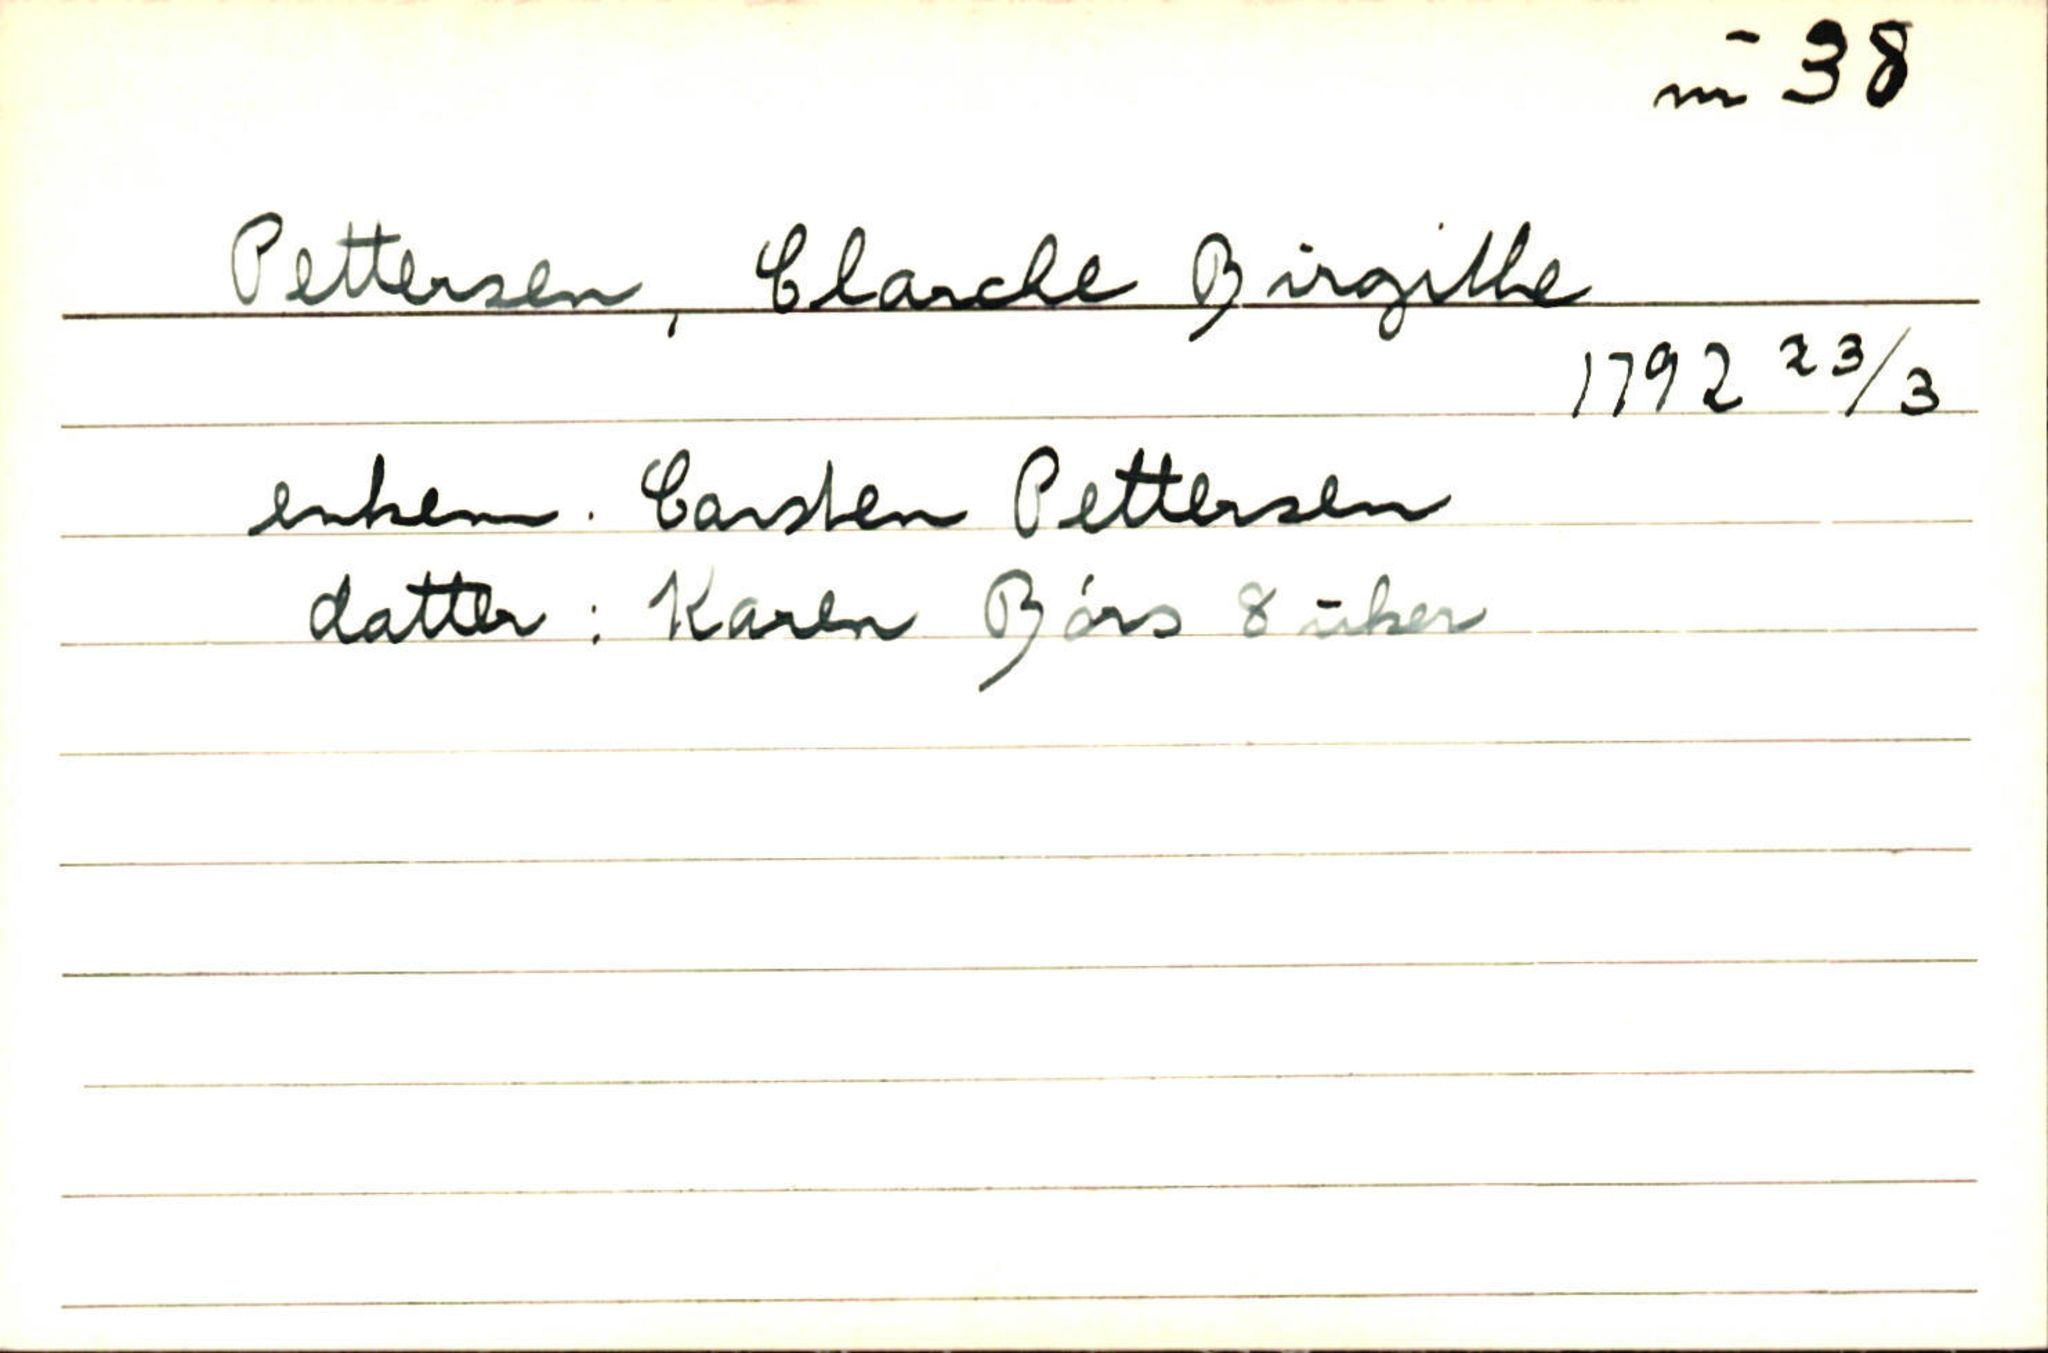 nr 38
Pettersen, Clarche Birgithe
1792 23/3
enkem. Carsten Pettersen
datter: Karen Börs 8 uker